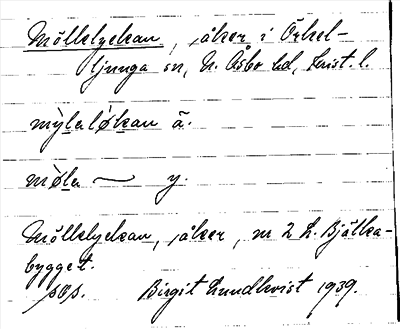 Möllelyckan, åker i Örkel-
ljunga sn, N. Åsbo hd, Krist. l.
mỳlalø̀kan ä.
mø̀la ~ y.
Möllelyckan, åker, nr 2 L. Bjälka-
bygget.
Birgit Lundkvist 1939.